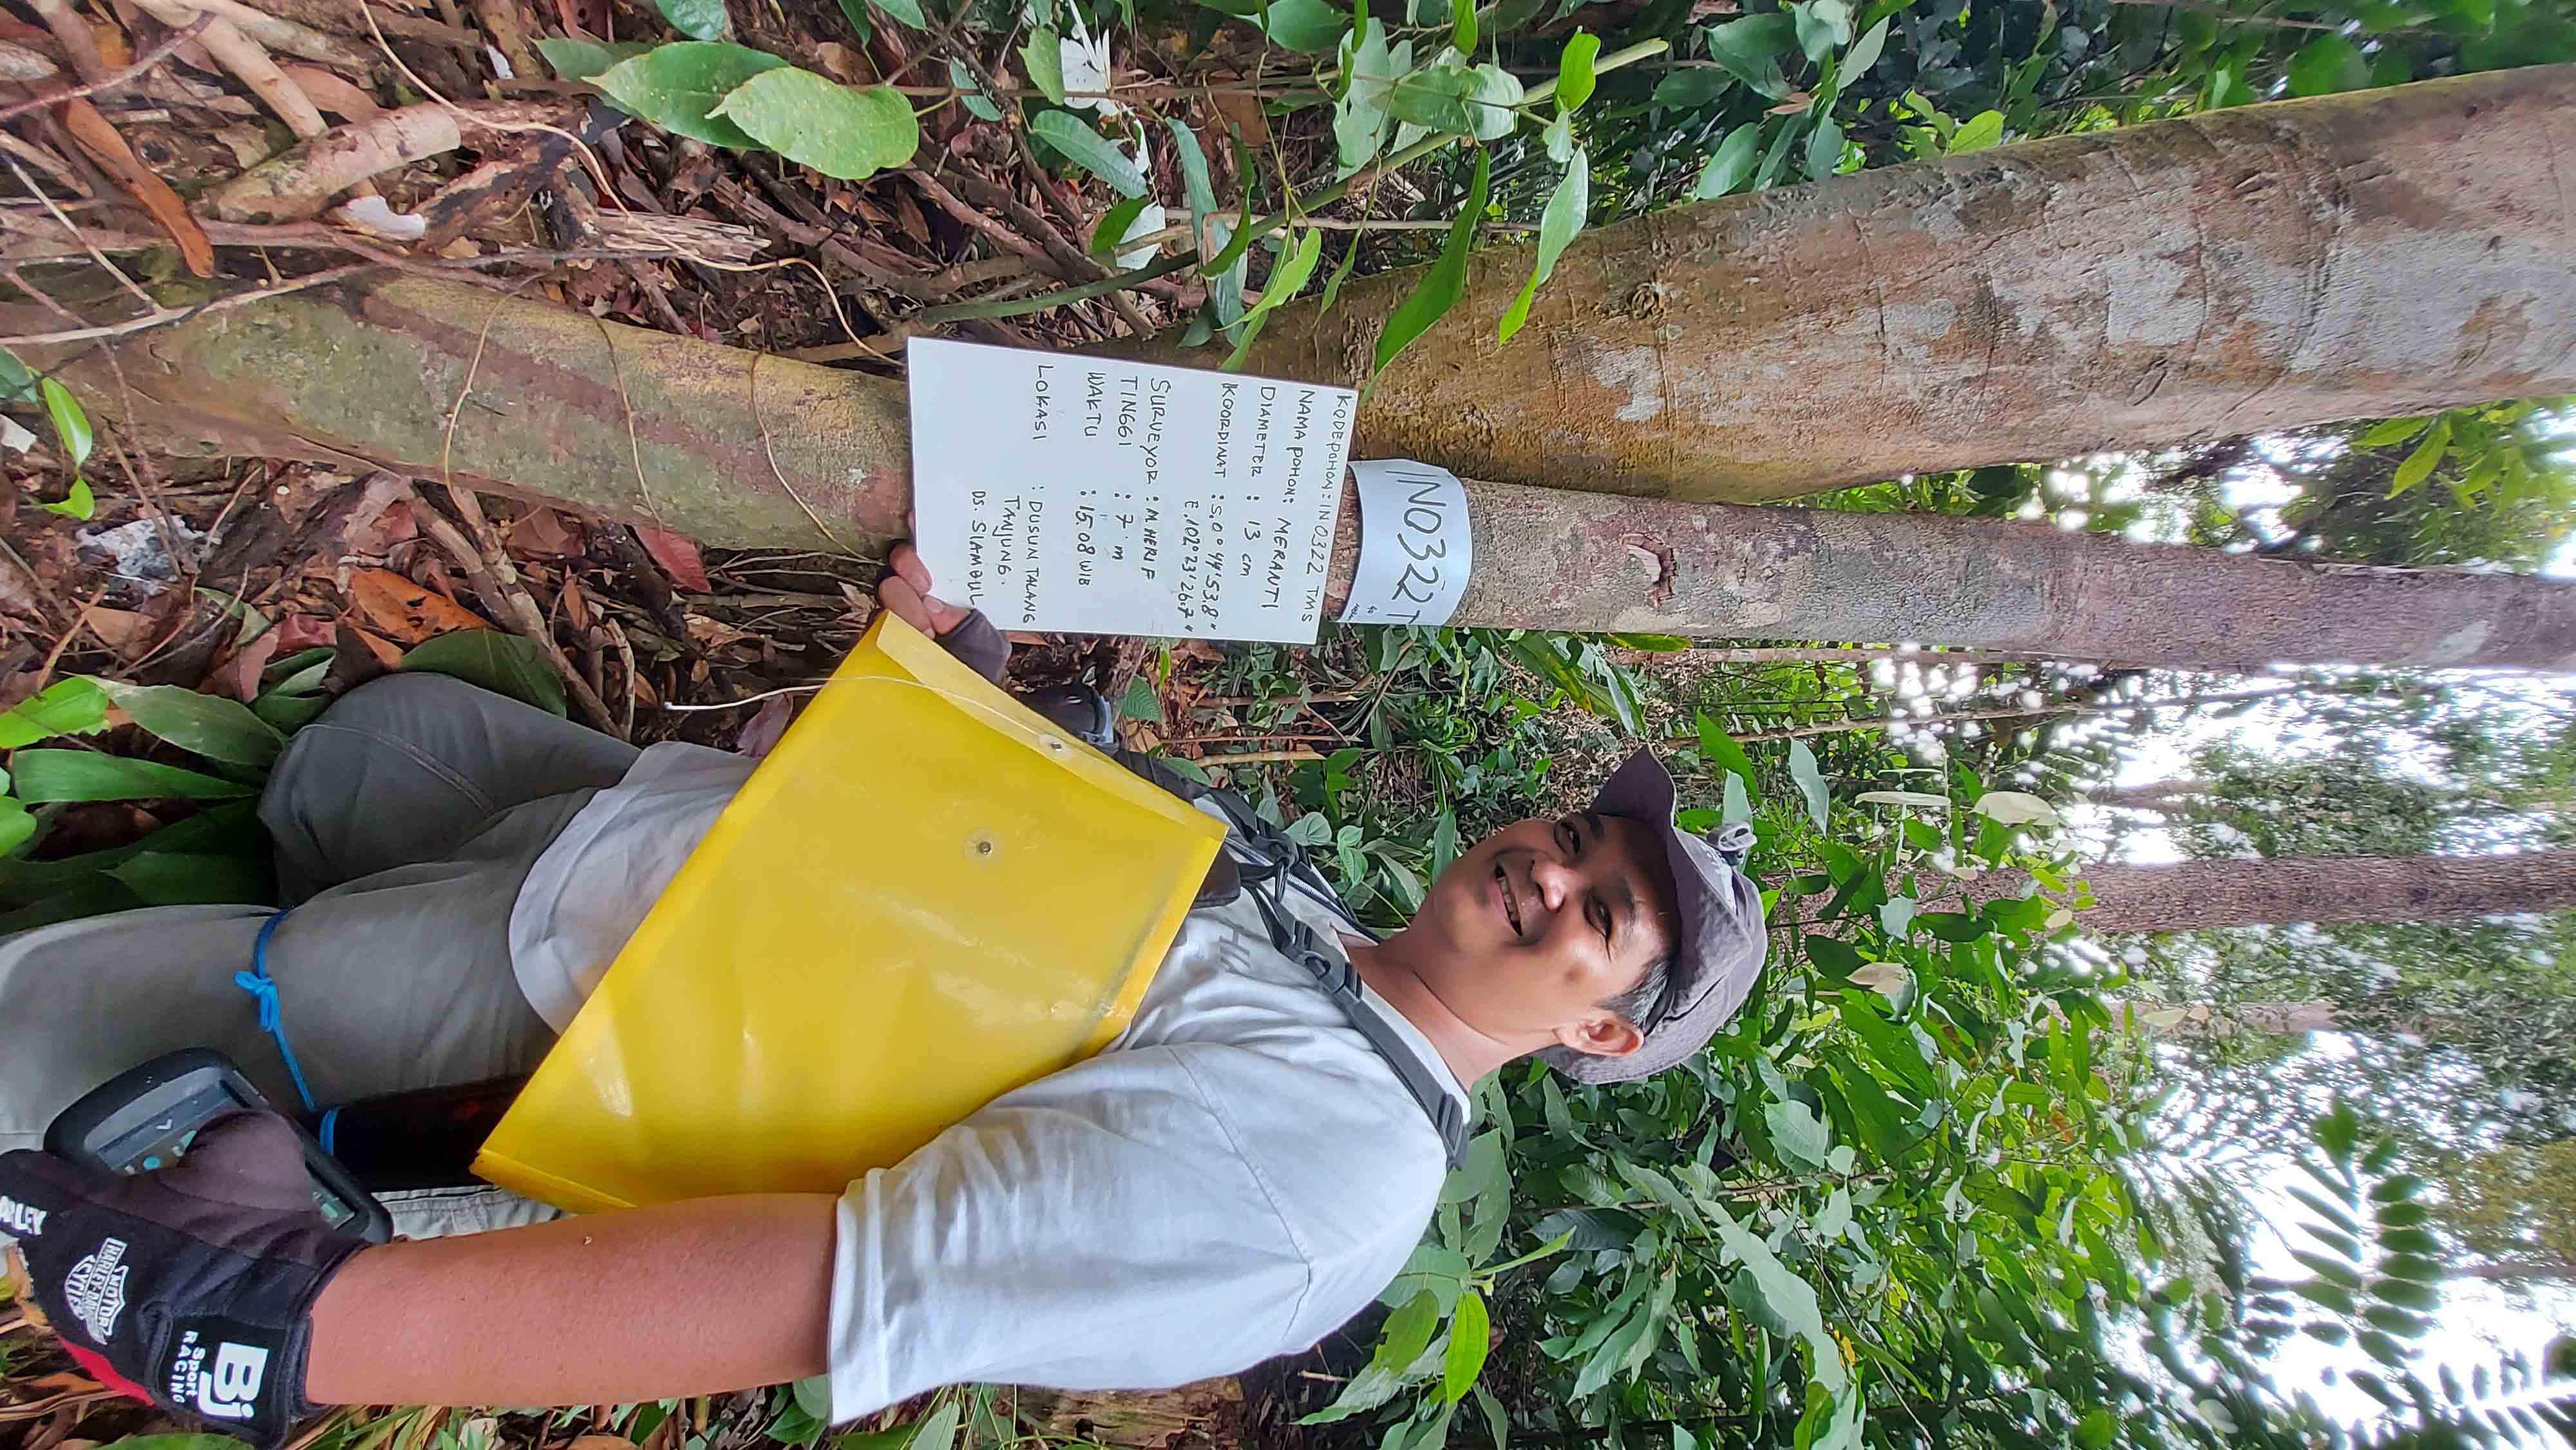 IN0322T
KODE POHON: IN 0322 TMS
NAMA POHON: MERANTI
DIAMETER : 13 cm
KOORDINAT : S.0° 44' 53.8"
E.102° 23' 26.7"
SURVEYOR : M HERI F
TINGGI : 7 m
WAKTU : 15.08 WIB
LOKASI : DUSUN TALANG
TANJUNG.
DS. SIAMBUL
Bj
Sport
RACING
MOTOR
HARLEY-DAVIDSON
CYCLES